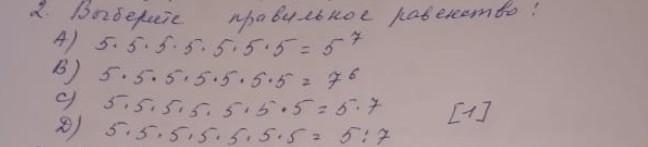 2. Выберите правильное равенство:
A) 5·5·5·5·5·5·5 = 5⁷
B) 5·5·5·5·5·5·5 = 7⁶
C) 5·5·5·5·5·5·5 = 5·7 [1]
D) 5·5·5·5·5·5·5 = 5:7